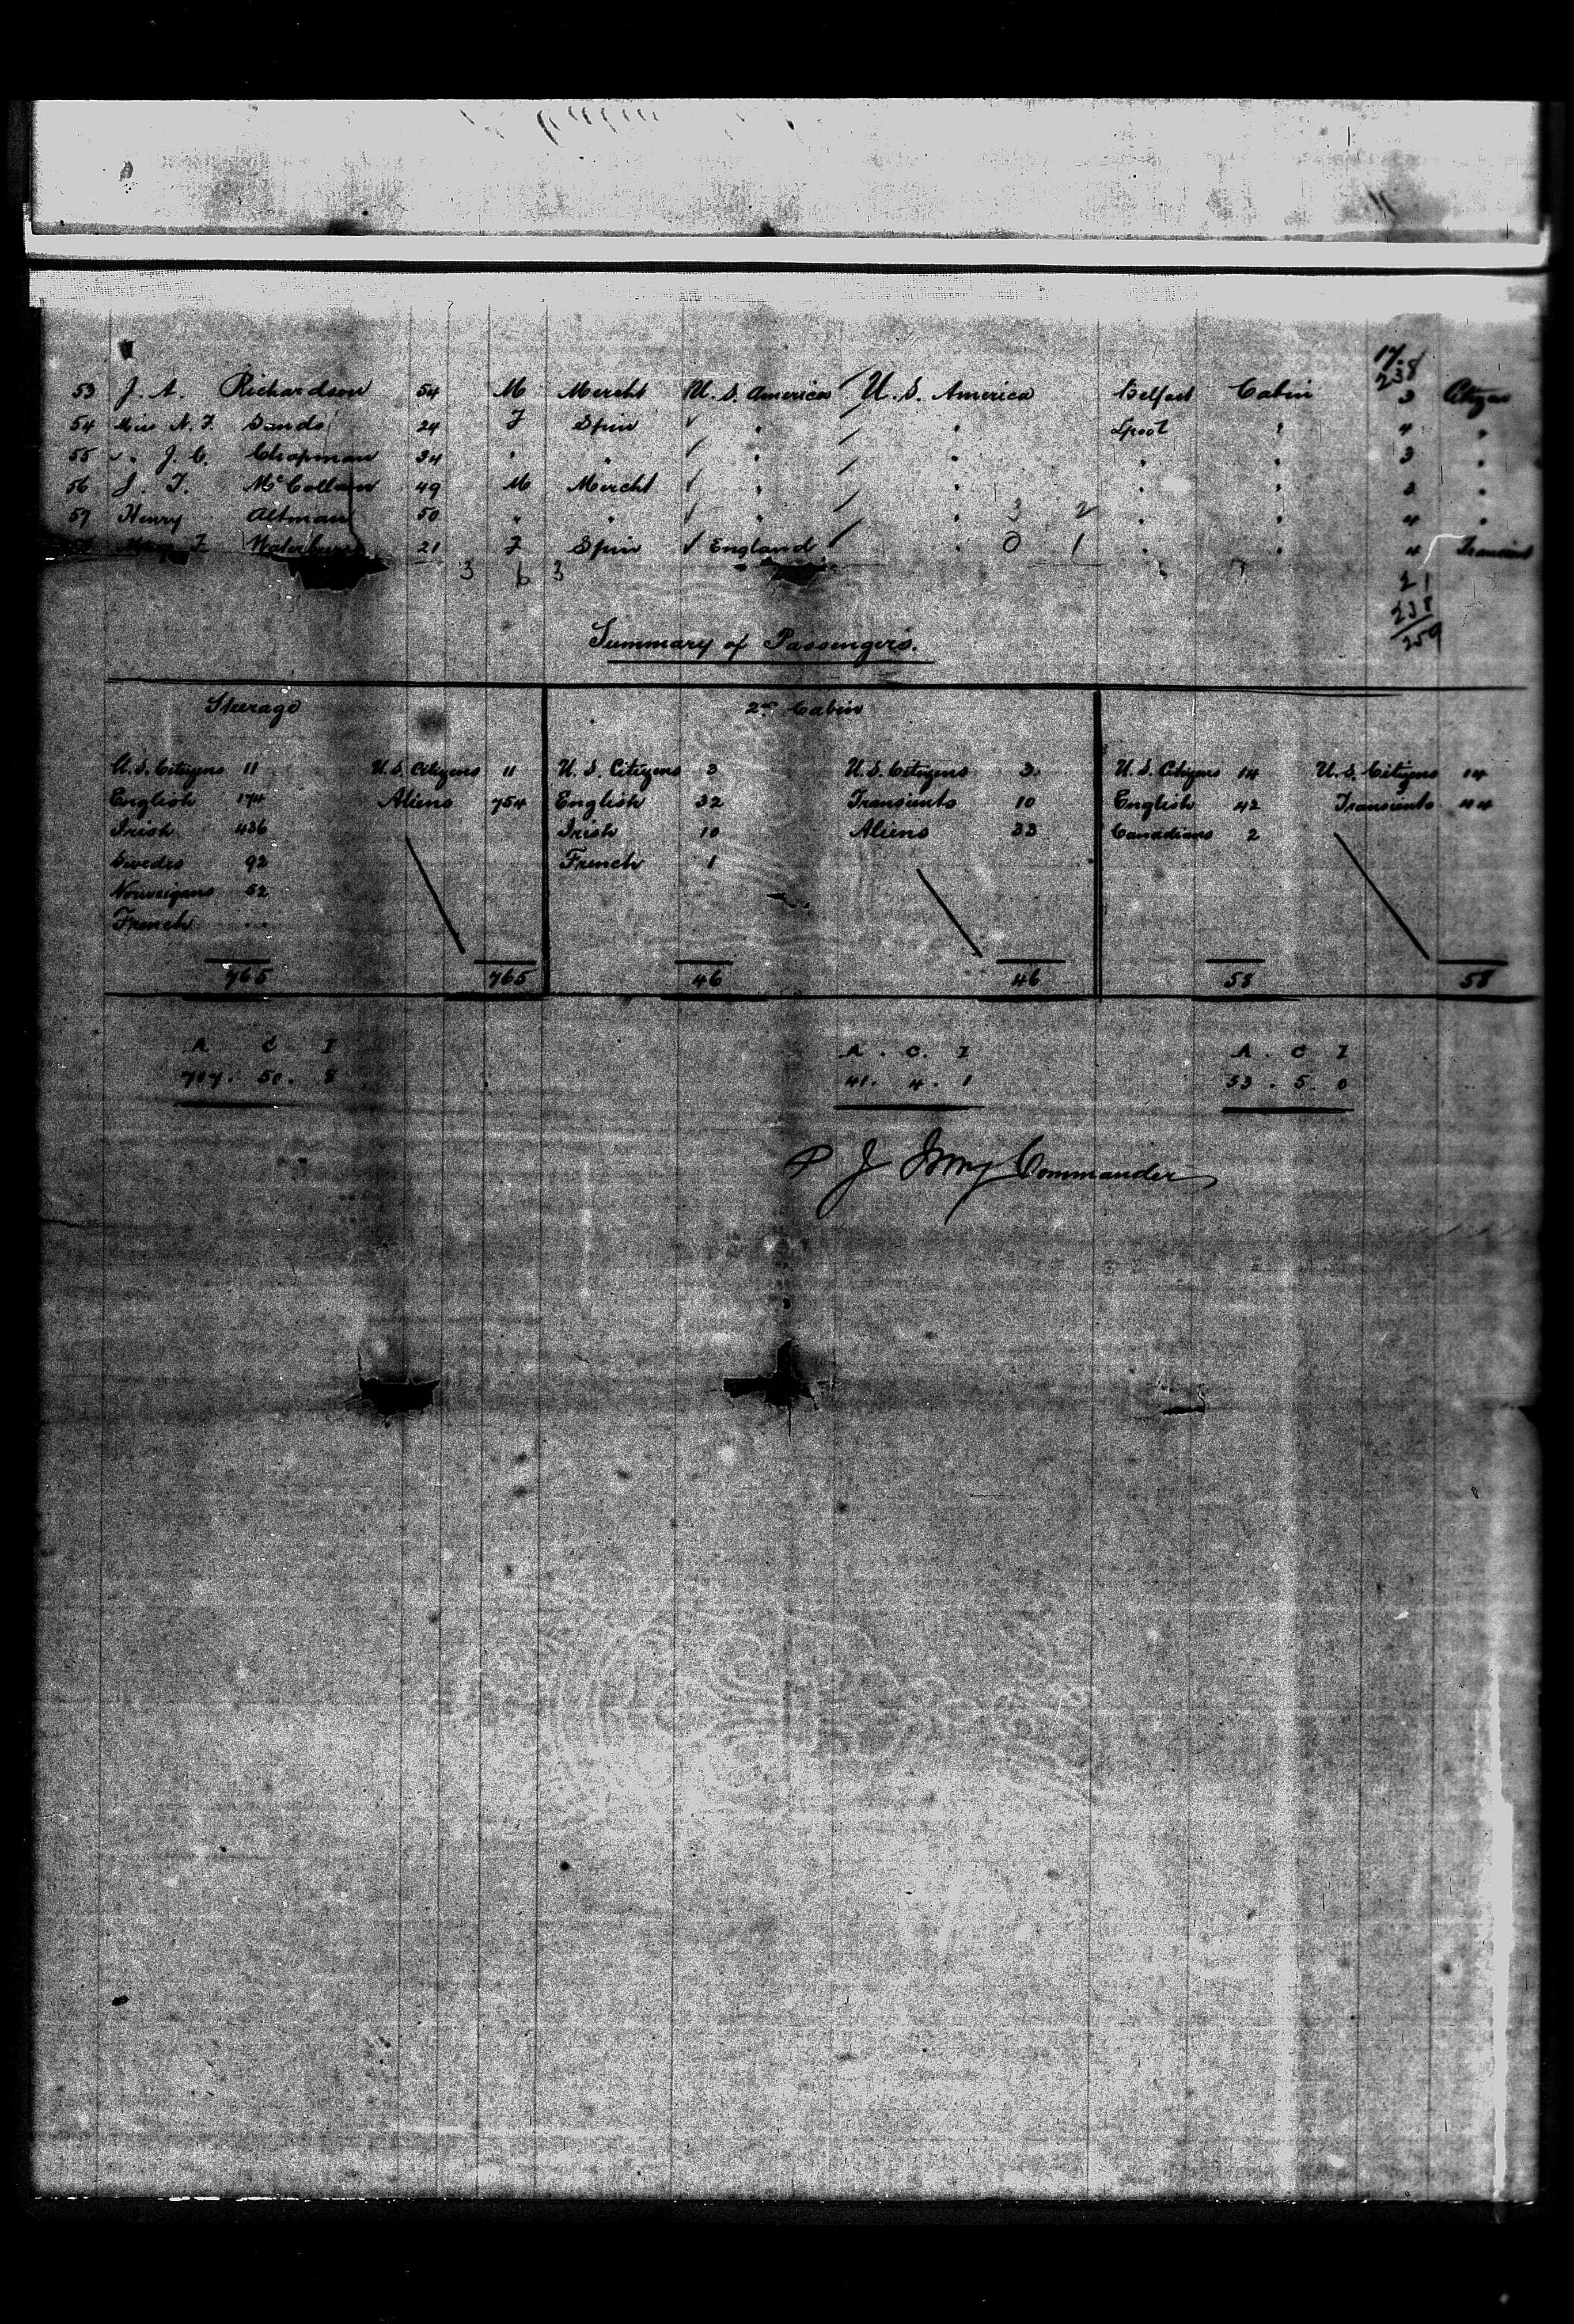 17.
238
53 J. A. Richardson 54 M Mercht U. S. America U. S. America Belfast Cabin 3 Citizen
54 Miss N. F. Sands 24 F Spin ✓ " " Lpool " 4 "
55 " J. C. Chapman 34 " " ✓ " " " " 3 "
56 J. T. McCollam 49 M Mercht ✓ " " " " 3 "
57 Henry Altman 50 " " ✓ " " 3 2 " " 4 "
21 F Spin ✓ England " 0 1 " " 4 Transient
3 6 3 21
238
259
Summary of Passengers.
Steerage 2nd Cabin
U. S. Citizens 11 U. S. Citizens 11 U. S. Citizens 3 U. S. Citizens 3 U. S. Citizens 14 U. S. Citizens 14
English 174 Aliens 754 English 32 Transients 10 English 42 Transients 44
Irish 436 Irish 10 Aliens 33 Canadians 2
Swedes 92 French 1
Norweigans 52
French
765 765 46 46 58 58
A C I A. C. I A. C I
707. 50. 8 41. 4. 1 53. 5. 0
P J Irving Commander